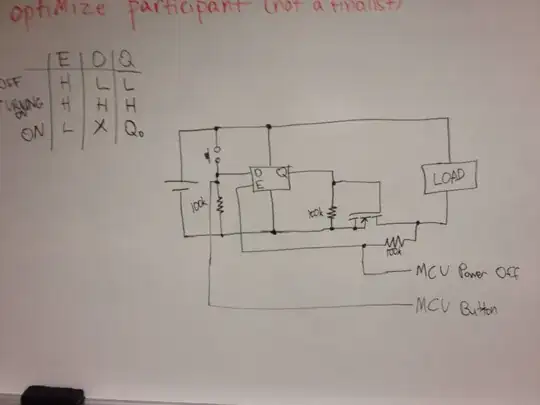 optimize participant (not a finalist)
E D Q
OFF H L L
TURNING ON H H H
ON L X Q₀
D Q
E
LOAD
100k
100k
100k
MCU Power Off
MCU Button